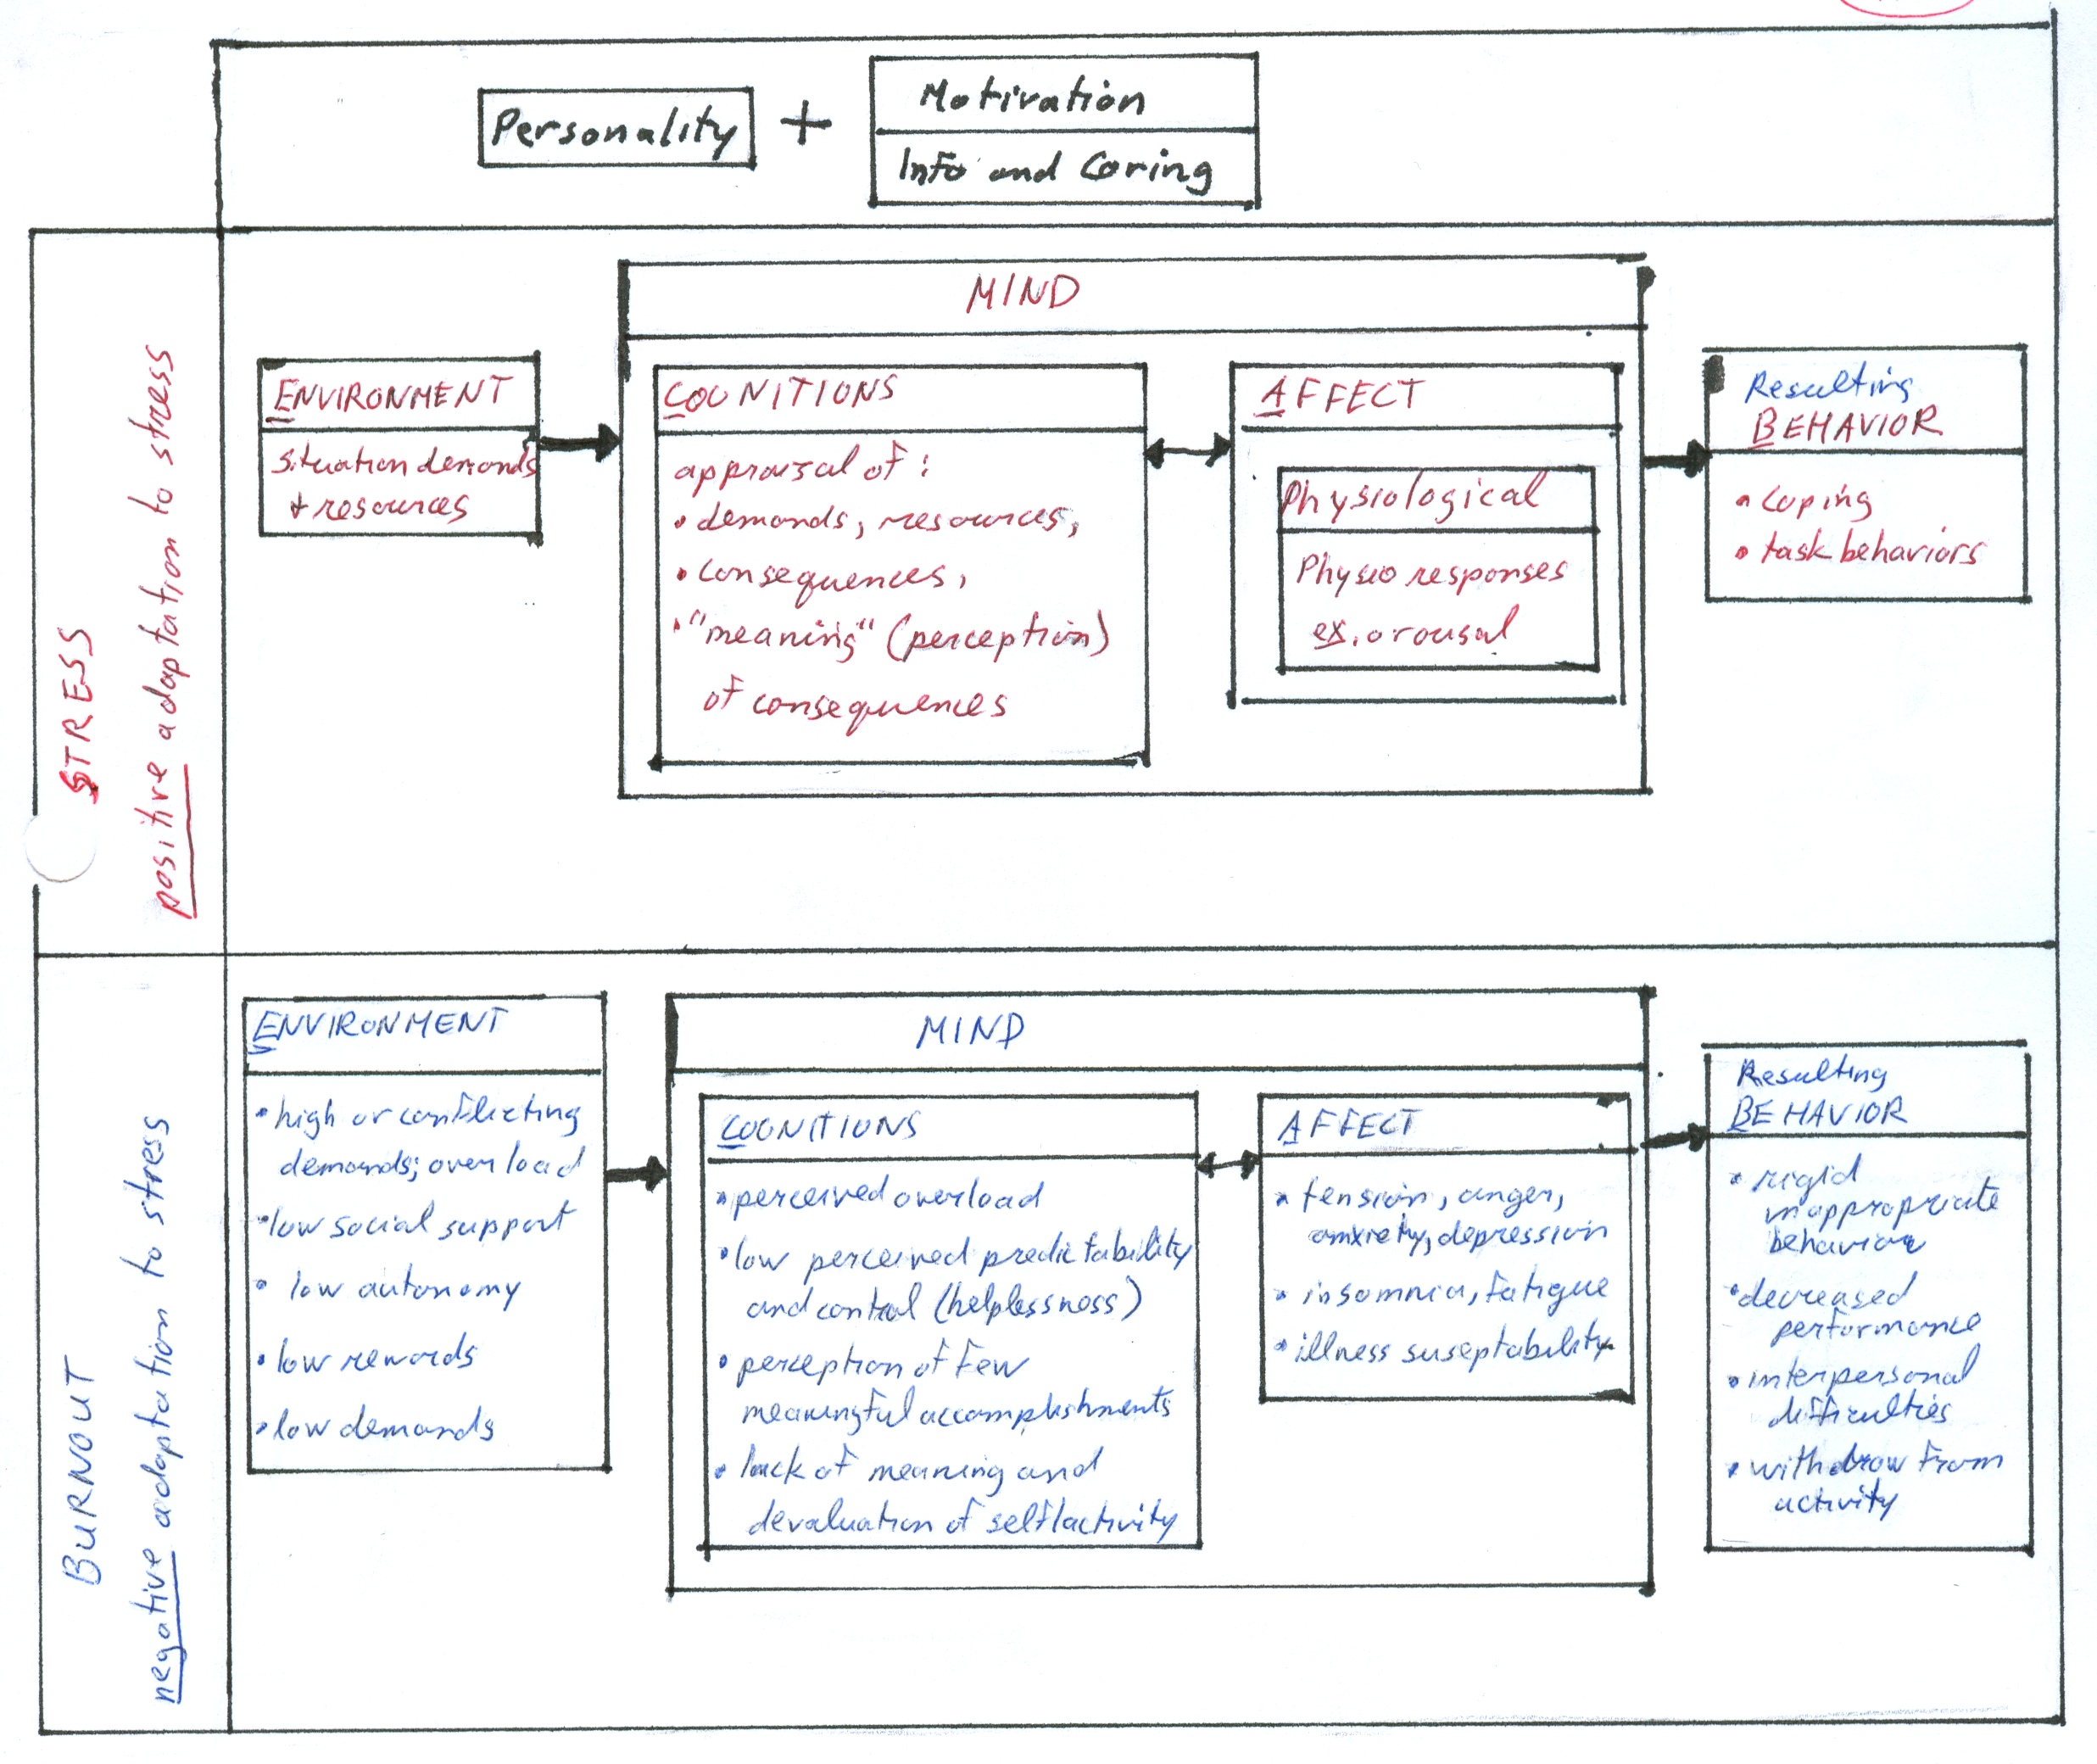 Personality
+
Motivation
Info and Caring
STRESS
positive adaptation to stress
ENVIRONMENT
situation demands
+ resources
MIND
COGNITIONS
appraisal of:
• demands, resources,
• consequences,
• "meaning" (perception)
of consequences
AFFECT
Physiological
Physio responses
ex. arousal
Resulting
BEHAVIOR
• coping
• task behaviors
BURNOUT
negative adaptation to stress
ENVIRONMENT
• high or conflicting
demands; overload
• low social support
• low autonomy
• low rewards
• low demands
MIND
COGNITIONS
• perceived overload
• low perceived predictability
and control (helplessness)
• perception of few
meaningful accomplishments
• lack of meaning and
devaluation of self/activity
AFFECT
• tension, anger,
anxiety, depression
• insomnia, fatigue
• illness suseptability
Resulting
BEHAVIOR
• rigid
inappropriate
behavior
• decreased
performance
• interpersonal
difficulties
• withdraw from
activity